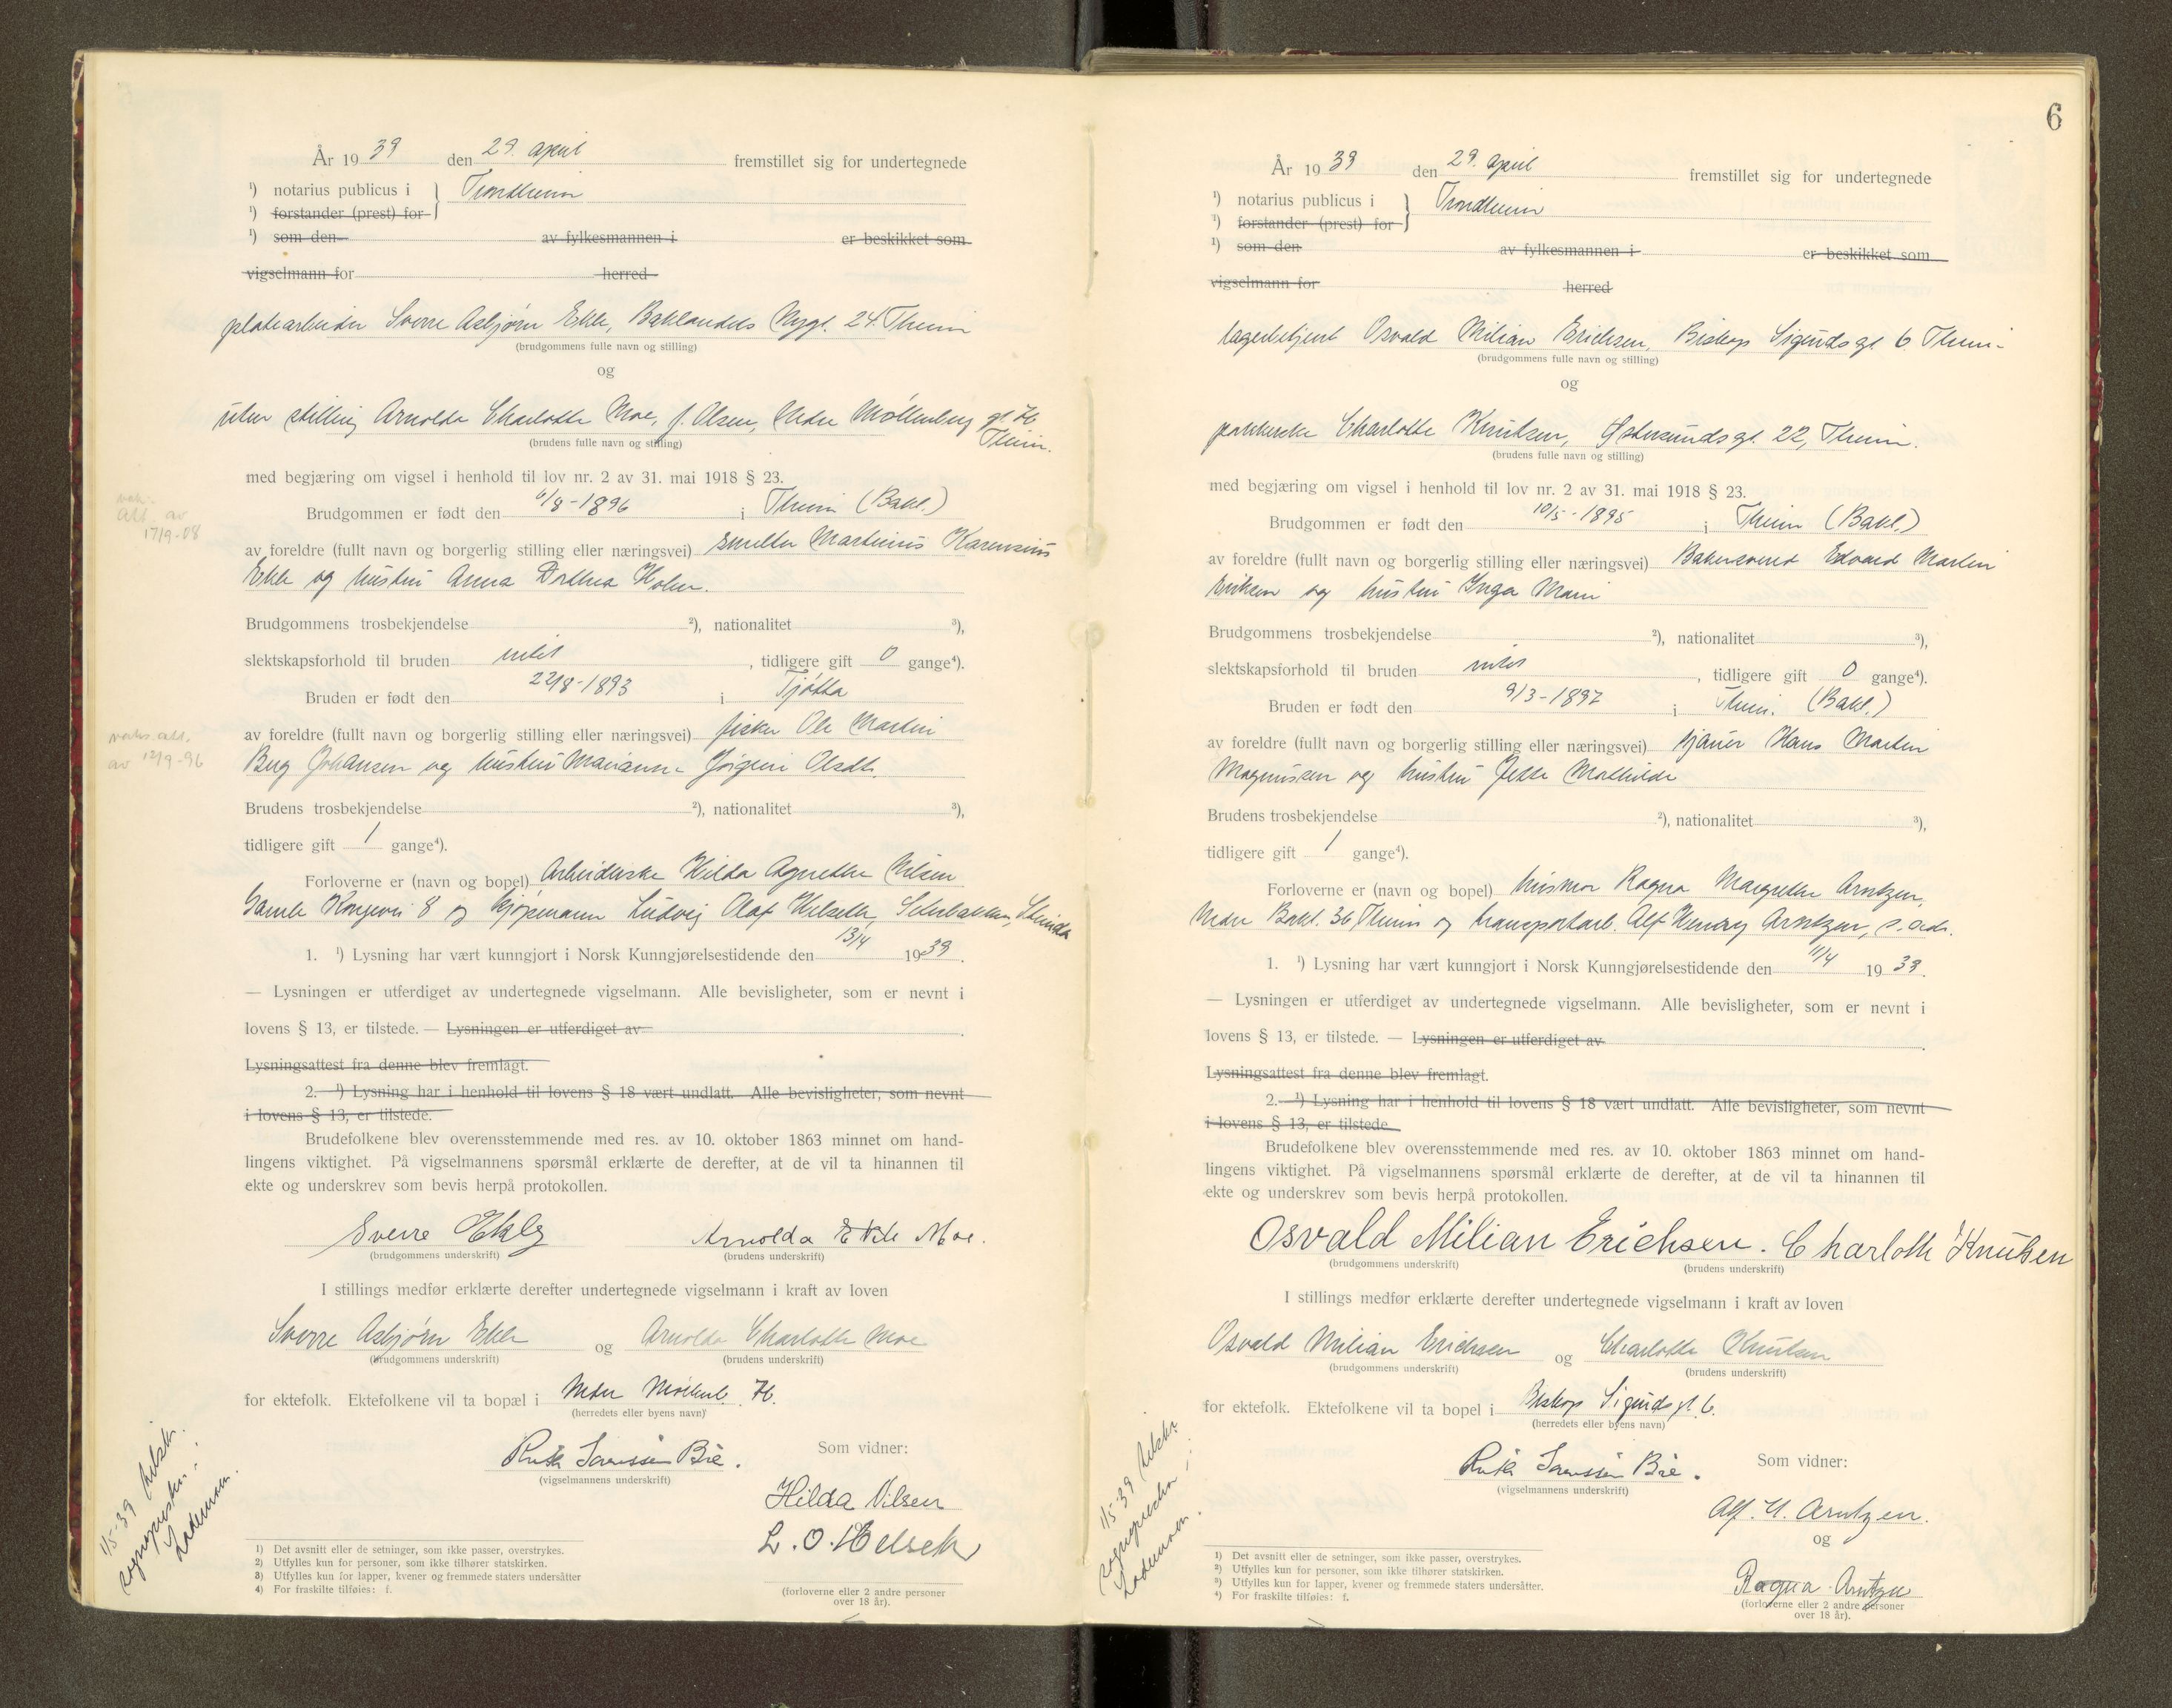 År 1939 den 29. april fremstillet sig for undertegnede
¹) notarius publicus i } Trondheim
¹) forstander (prest) for
¹) som den av fylkesmannen i er beskikket som
vigselmann for herred
platearbeider Sverre Asbjørn Ekle, Baklandets Nygt. 24. Theim
(brudgommens fulle navn og stilling)
og
uten stilling Arnolda Charlotte Moe, f. Olsen, Nedre Møllenberg gt. 76.
Theim.
(brudens fulle navn og stilling)
med begjæring om vigsel i henhold til lov nr. 2 av 31. mai 1918 § 23.
Brudgommen er født den 6/8-1896 i Theim (Bakl.)
att. av
17/9-08
av foreldre (fullt navn og borgerlig stilling eller næringsvei) smelter Martinius Karensius
Ekle og hustru Anna Dorthea Holm.
Brudgommens trosbekjendelse ²), nationalitet ³),
slektskapsforhold til bruden intet, tidligere gift 0 gange⁴).
Bruden er født den 22/8-1893 i Tjøtta
av foreldre (fullt navn og borgerlig stilling eller næringsvei) fisker Ole Martin
att.
av 12/9-96
Berg Johansen og hustru Marianne Jørgine Olsdtr.
Brudens trosbekjendelse ²), nationalitet ³),
tidligere gift 1 gange⁴).
Forloverne er (navn og bopel) Arbeiderske Hilda Agnethe Nilsen
Gamle Kongevei 8 og kjøpmann Ludvig Olaf Helseth, Selsbakken, Strinda
1. ¹) Lysning har vært kunngjort i Norsk Kunngjørelsestidende den 13/4 1939.
— Lysningen er utferdiget av undertegnede vigselmann. Alle bevisligheter, som er nevnt i
lovens § 13, er tilstede. — Lysningen er utferdiget av .
Lysningsattest fra denne blev fremlagt.
2. ¹) Lysning har i henhold til lovens § 18 vært undlatt. Alle bevisligheter, som nevnt
i lovens § 13, er tilstede.
Brudefolkene blev overensstemmende med res. av 10. oktober 1863 minnet om hand-
lingens viktighet. På vigselmannens spørsmål erklærte de derefter, at de vil ta hinannen til
ekte og underskrev som bevis herpå protokollen.
Sverre Ekle Arnolda Ekle Moe.
(brudgommens underskrift) (brudens underskrift)
I stillings medfør erklærte derefter undertegnede vigselmann i kraft av loven
Sverre Asbjørn Ekle og Arnolda Charlotte Moe
(brudgommens underskrift) (brudens underskrift)
for ektefolk. Ektefolkene vil ta bopæl i Nedre Møllenb. 76.
(herredets eller byens navn)
Som vidner:
(vigselmannens underskrift)
Hilda Nilsen
L. O. Helseth
1/5-39 utskr.
sognepresten i
Lademoen.
¹) Det avsnitt eller de setninger, som ikke passer, overstrykes.
²) Utfylles kun for personer, som ikke tilhører statskirken.
³) Utfylles kun for lapper, kvener og fremmede staters undersåtter
⁴) For fraskilte tilføies: f.
(forloverne eller 2 andre personer
over 18 år).
6
År 1939 den 29. april fremstillet sig for undertegnede
¹) notarius publicus i } Trondheim
¹) forstander (prest) for
¹) som den av fylkesmannen i er beskikket som
vigselmann for herred
lagerbetjent Osvald Milian Erichsen, Biskop Sigurds gt. 6 Theim
(brudgommens fulle navn og stilling)
og
pakkerske Charlotte Knutsen, Østersunds gt. 22, Theim.
(brudens fulle navn og stilling)
med begjæring om vigsel i henhold til lov nr. 2 av 31. mai 1918 § 23.
Brudgommen er født den 10/5-1895 i Theim (Bakl.)
av foreldre (fullt navn og borgerlig stilling eller næringsvei) Bakersvend Edvard Martin
Eriksen og hustru Inga Marie
Brudgommens trosbekjendelse ²), nationalitet ³),
slektskapsforhold til bruden intet, tidligere gift 0 gange⁴).
Bruden er født den 9/3-1897 i Theim. (Bakl.)
av foreldre (fullt navn og borgerlig stilling eller næringsvei) sjauer Hans Martin
Magnussen og hustru Jette Mathilde
Brudens trosbekjendelse ²), nationalitet ³),
tidligere gift 1 gange⁴).
Forloverne er (navn og bopel) husmor Ragna Margrethe Arntzen,
Nedre Bakl. 36 Theim og transportarb. Alf Henry Arntzen, s. adr.
1. ¹) Lysning har vært kunngjort i Norsk Kunngjørelsestidende den 11/4 1939.
— Lysningen er utferdiget av undertegnede vigselmann. Alle bevisligheter, som er nevnt i
lovens § 13, er tilstede. — Lysningen er utferdiget av .
Lysningsattest fra denne blev fremlagt.
2. ¹) Lysning har i henhold til lovens § 18 vært undlatt. Alle bevisligheter, som nevnt
i lovens § 13, er tilstede
Brudefolkene blev overensstemmende med res. av 10. oktober 1863 minnet om hand-
lingens viktighet. På vigselmannens spørsmål erklærte de derefter, at de vil ta hinannen til
ekte og underskrev som bevis herpå protokollen.
Osvald Milian Erichsen. Charlotte Knutsen
(brudgommens underskrift) (brudens underskrift)
I stillings medfør erklærte derefter undertegnede vigselmann i kraft av loven
Osvald Milian Erichsen og Charlotte Knutsen
(brudgommens underskrift) (brudens underskrift)
for ektefolk. Ektefolkene vil ta bopel i Biskop Sigurds gt. 6.
(herredets eller byens navn)
Som vidner:
(vigselmannens underskrift)
Alf. H. Arntzen.
og
Ragna Arntzen
1/5-39 utskr.
sognepresten i
Lademoen.
¹) Det avsnitt eller de setninger, som ikke passer, overstrykes.
²) Utfylles kun for personer, som ikke tilhører statskirken.
³) Utfylles kun for lapper, kvener og fremmede staters undersåtter.
⁴) For fraskilte tilføies: f.
(forloverne eller 2 andre personer
over 18 år).